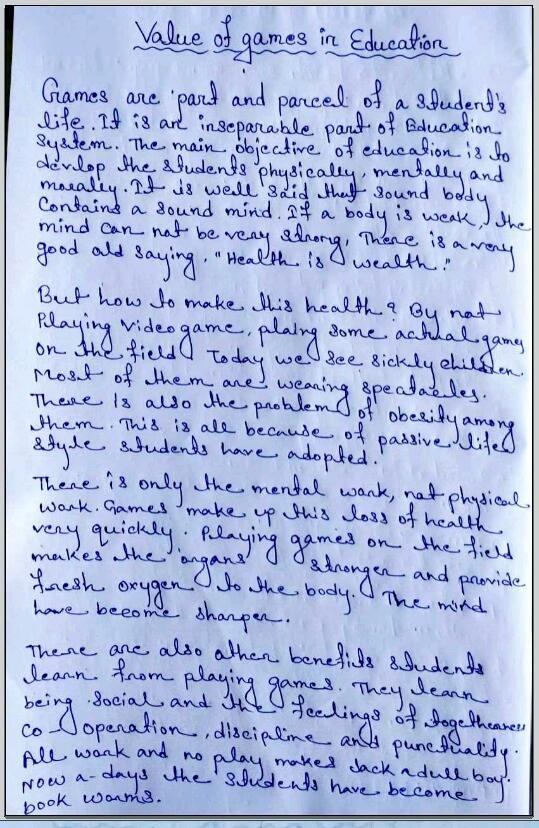 Value of games in Education
Games are part and parcel of a student's
life. It is an inseparable part of Education
System. The main objective of education is to
devlop the students physically, mentally and
morally. It is well said that sound body
Contains a sound mind. If a body is weak, the
mind can not be very strong, There is a very
good old saying. "Health is wealth."
But how to make this health? By not
Playing video game, plaing some actual games
on the field Today we see sickly children.
Most of them are wearing spectacles.
There is also the problem of obesity among
them. This is all because of passive life
style students have adopted.
There is only the mental work, not physical
work. Games make up this loss of health
very quickly. Playing games on the field
makes the organs stronger and provide
fresh oxygen to the body. The mind
have become sharper.
There are also other benefits students
learn from playing games. They learn
being social and the feelings of togetherness
co-operation, discipline and punctuality.
All work and no play makes Jack a dull boy.
Now a-days the students have become
book worms.